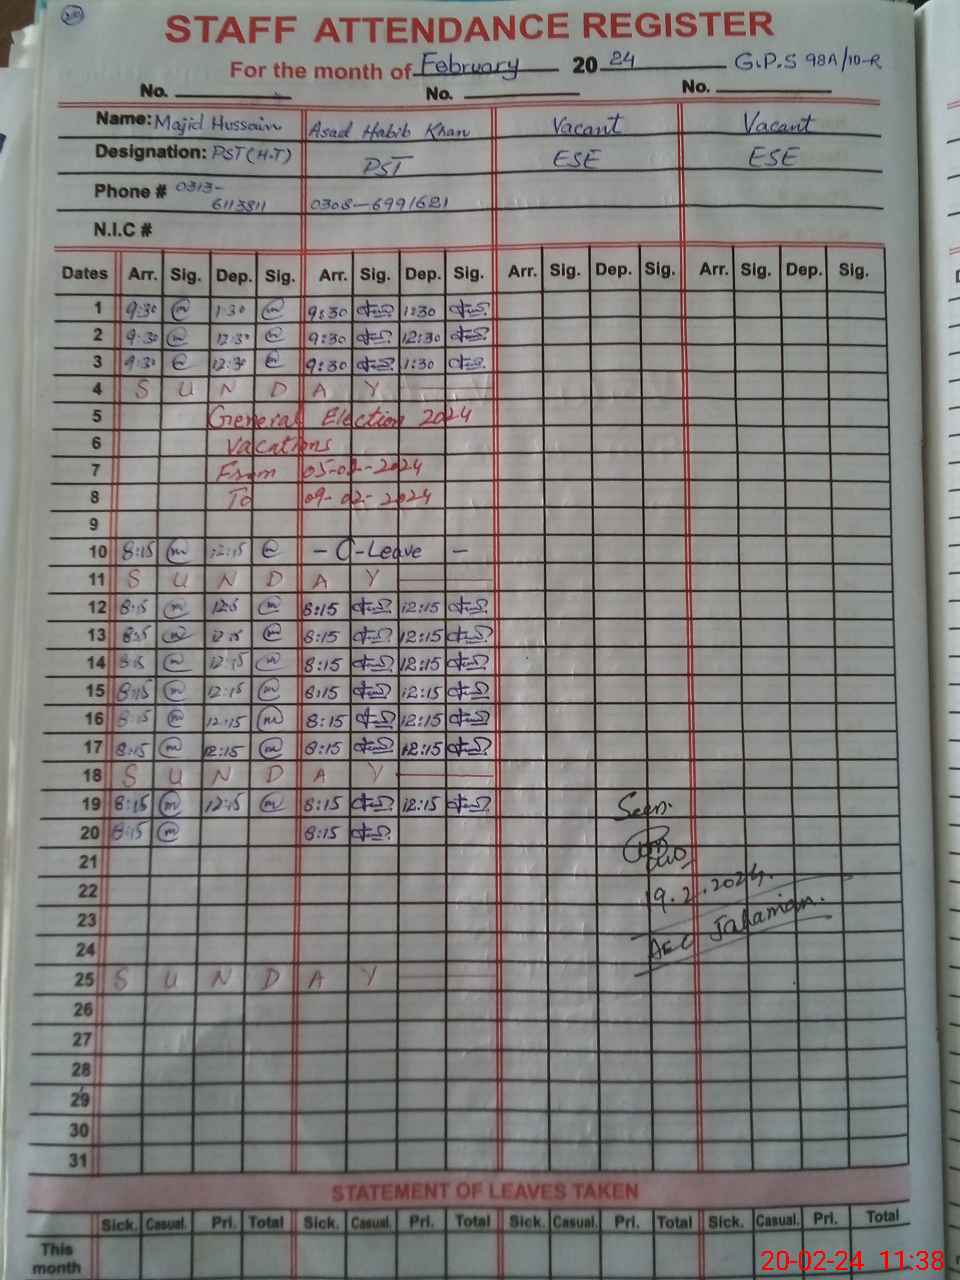 STAFF ATTENDANCE REGISTER
For the month of February 2024 G.P.S 98A/10-R
No. No. No.
Name: Majid Hussain Asad Habib Khan Vacant Vacant
Designation: PST (H.T) PST ESE ESE
Phone # 0313-6113811 0308-6991621
N.I.C #
Dates Arr. Sig. Dep. Sig. Arr. Sig. Dep. Sig. Arr. Sig. Dep. Sig. Arr. Sig. Dep. Sig.
1 9:30 1:30 9:30 1:30
2 9:30 12:30 9:30 12:30
3 9:30 12:30 9:30 1:30
4 S U N D A Y
5 General Election 2024
6 Vacations
7 From 05-02-2024
8 To 09-02-2024
9
10 8:15 12:15 - C-Leave -
11 S U N D A Y
12 8:15 8:15 12:15
13 8:15 12:15
14 12:15 8:15 12:15
15 8:15 12:15 8:15 12:15
16 8:15 12:15 8:15 12:15
17 8:15 12:15 8:15 12:15
18 S U N D A Y
19 8:15 12:15 8:15 12:15
Seen.
20 8:15 8:15
21
22
19.2.2024.
23
AEC Jahanian.
24
25 S U N D A Y
26
27
28
29
30
31
STATEMENT OF LEAVES TAKEN
Sick. Casual. Pri. Total Sick. Casual. Pri. Total Sick. Casual. Pri. Total Sick. Casual. Pri. Total
This month
20-02-24 11:38